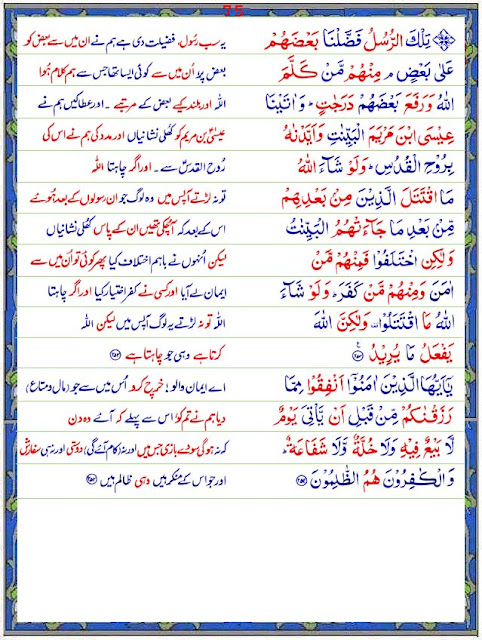 75
تِلْكَ الرُّسُلُ فَضَّلْنَا بَعْضَهُمْ یہ سب رسول، فضیلت دی ہے ہم نے ان میں سے بعض کو
عَلٰى بَعْضٍ ۘ مِنْهُمْ مَّنْ كَلَّمَ بعض پر، اُن میں سے کوئی ایسا تھا جس سے ہم کلام ہُوا
اللّٰهُ وَرَفَعَ بَعْضَهُمْ دَرَجٰتٍ ۚ وَاٰتَيْنَا اللہ اور بلند کیے بعض کے مرتبے۔ اور عطا کیں ہم نے
عِيْسَى ابْنَ مَرْيَمَ الْبَيِّنٰتِ وَاَيَّدْنٰهُ عیسیٰؑ بن مریم کو کھلی نشانیاں اور مدد کی ہم نے اس کی
بِرُوْحِ الْقُدُسِ ۗ وَلَوْ شَآءَ اللّٰهُ رُوح القدس سے۔ اور اگر چاہتا اللہ
مَا اقْتَتَلَ الَّذِيْنَ مِنْ بَعْدِهِمْ تو نہ لڑتے آپس میں وہ لوگ جو ان رسولوں کے بعد ہُوئے
مِّنْ بَعْدِ مَا جَآءَتْهُمُ الْبَيِّنٰتُ اس کے بعد کہ آچکی تھیں ان کے پاس کھُلی نشانیاں
وَلٰكِنِ اخْتَلَفُوْا فَمِنْهُمْ مَّنْ لیکن اُنہوں نے باہم اختلاف کیا پھر کوئی تو اُن میں سے
اٰمَنَ وَمِنْهُمْ مَّنْ كَفَرَ ۗ وَلَوْ شَآءَ ایمان لے آیا اور کسی نے کفر اختیار کیا اور اگر چاہتا
اللّٰهُ مَا اقْتَتَلُوْا ۟ وَلٰكِنَّ اللّٰهَ اللہ تو نہ لڑتے یہ لوگ آپس میں لیکن اللہ
يَفْعَلُ مَا يُرِيْدُ ﴿۲۵۳﴾ کرتا ہے وہی جو چاہتا ہے ﴿۲۵۳﴾
يٰٓاَيُّهَا الَّذِيْنَ اٰمَنُوْٓا اَنْفِقُوْا مِمَّا اے ایمان والو! خرچ کرو اُس میں سے جو (مال و متاع)
رَزَقْنٰكُمْ مِّنْ قَبْلِ اَنْ يَّاْتِيَ يَوْمٌ دیا ہم نے تم کو، اس سے پہلے کہ آئے وہ دن
لَّا بَيْعٌ فِيْهِ وَلَا خُلَّةٌ وَّلَا شَفَاعَةٌ ۗ کہ نہ ہوگی سودے بازی جس میں اور نہ (کام آئے گی) دوستی اور نہ ہی سفارش
وَالْكٰفِرُوْنَ هُمُ الظّٰلِمُوْنَ ﴿۲۵۴﴾ اور جو اس کے منکر ہیں وہی ظالم ہیں ﴿۲۵۴﴾